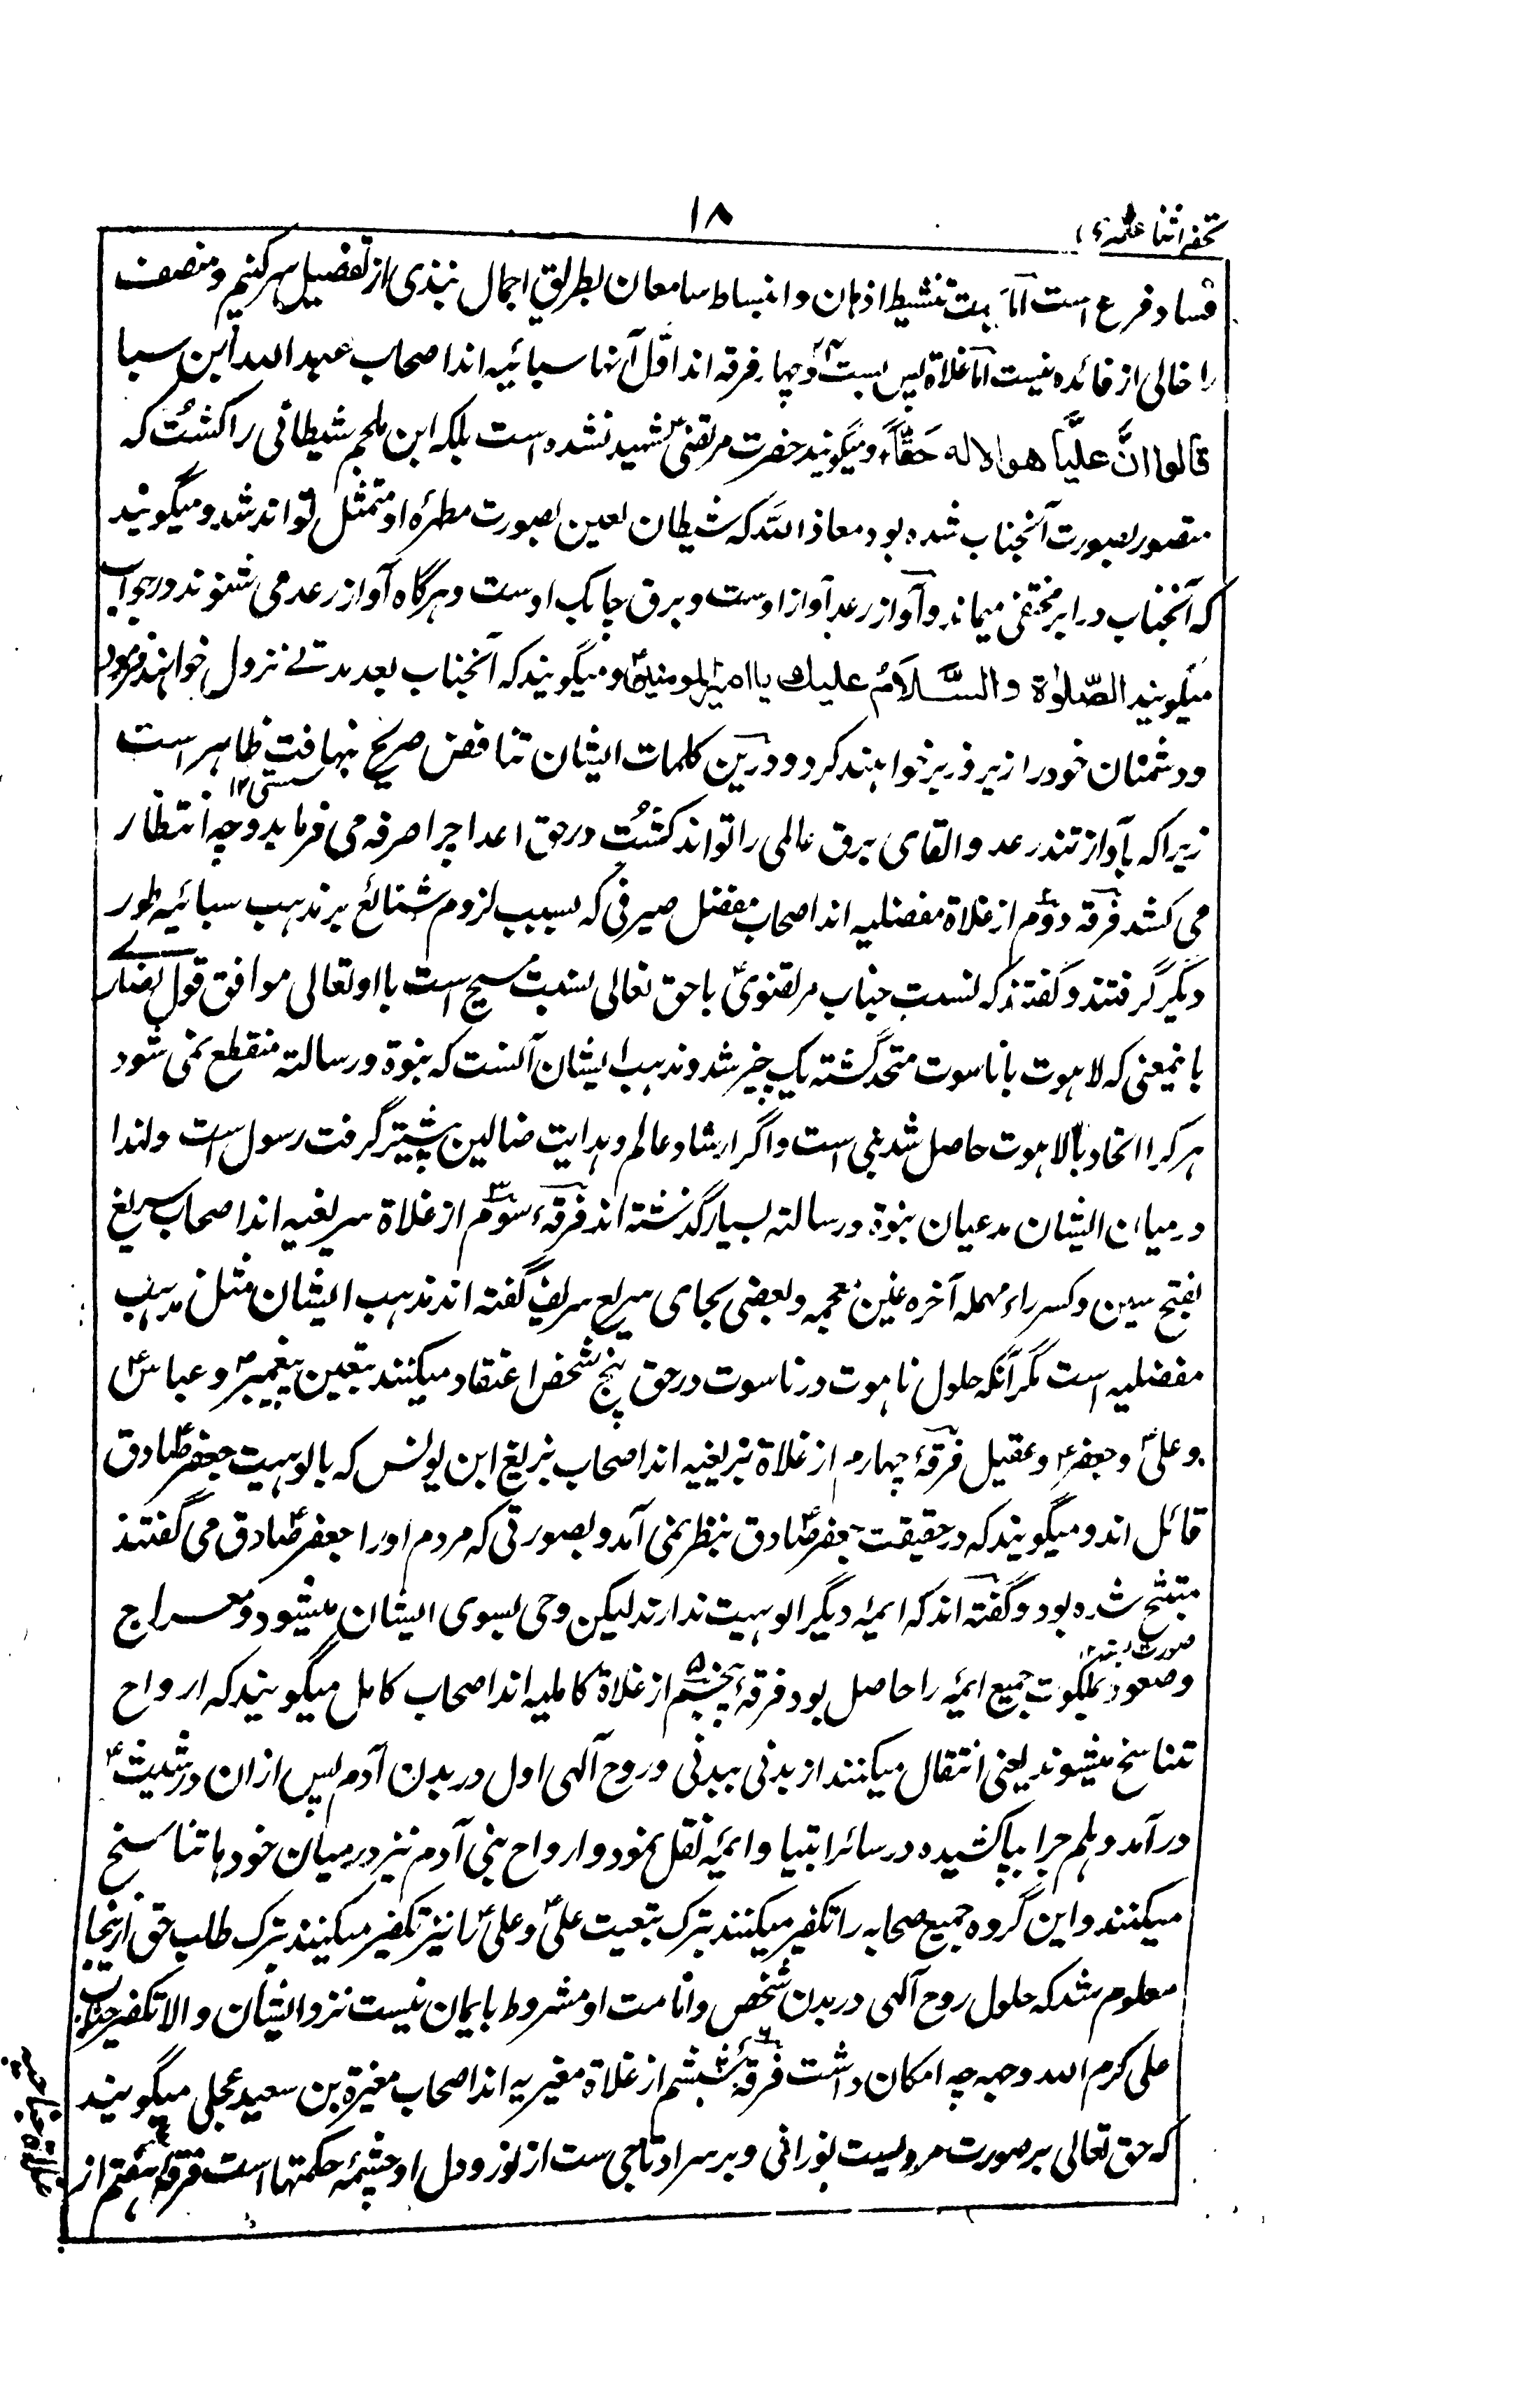 تحفه اثنا عشریه
۱۸
فساد فرع است اما بجهت تنشیط اذهان و انبساط سامعان بطریق اجمال نبذی از تفصیل سر کنیم و منصف
را خالی از فائده نیست اما غلاة پس بست و چهار فرقه اند اوّل آنها سبائیه اند اصحاب عبد الله ابن سبا
قالوا انَّ علیّاً هو الاله حَقّاً و میگویند حضرت مرتضیؑ شهید نشده است بلکه ابن ملجم شیطانی را کشت که
متصور بصورت آنجناب شده بود معاذ الله که شیطان لعین بصورت مطهره او متمثل تواند شد و میگویند
که آنجناب در ابر مختفی میماند و آواز رعد آواز اوست و برق چابک اوست و هرگاه آواز رعد می شنوند در جواب
میگویند الصّلوٰة والسَّلاَمُ علیك یا امیر المومنین و میگویند که آنجناب بعد مدتے نزول خواهند فرمود
و دشمنان خود را زیر و زبر خواهند کرد و درین کلمات ایشان تناقض صریح تهافت ظاهر است
سستی ۱۲
زیرا که بآواز تند رعد و القای برق عالمی را تواند کشت در حق اعدا چرا صرفه می فرماید و چه انتظار
می کشد فرقه دوّم از غلاة مفضلیه اند اصحاب مفضل صیرفی که بسبب لزوم شنائع بر مذهب سبائیه طور
دیگر گرفتند و گفتند که نسبت جناب مرتضویؑ با حق تعالی نسبت مسیح است با او تعالی موافق قول نصاری
باینمعنی که لاهوت با ناسوت متحد گشته یک چیز شد و مذهب ایشان آنست که نبوة و رسالته منقطع نمی شود
هر کرا اتحاد بالاهوت حاصل شد نبی است و اگر ارشاد عالم و هدایت ضالین پیشتر گرفت رسول است و لهذا
درمیان ایشان مدعیان نبوة و رسالته بسیار گذشته اند فرقهٔ سوّم از غلاة سریغیه اند اصحاب سریغ
بفتح سین و کسر راء مهمله آخره غین معجمه و بعضی بجای سریع سریغ گفته اند مذهب ایشان مثل مذهب
مفضلیه است مگر آنکه حلول لاهوت در ناسوت در حق پنج شخص اعتقاد میکنند بتعین پیغمبرؐ و عباسؑ
و علیؑ و جعفرؑ و عقیل فرقهٔ چهارم از غلاة بزیغیه اند اصحاب بزیغ ابن یونس که بالوهیت جعفر صادق
قائل اند و میگویند که در حقیقت جعفر صادق بنظر نمی آمد و بصورتی که مردم او را جعفر صادق می گفتند
متشبح شده بود و گفته اند که ائمهٔ دیگر الوهیت ندارند لیکن وحی بسوی ایشان میشود و معراج
صورت بندد ۱۲
و صعود بملکوت جمیع ائمه را حاصل بود فرقهٔ پنجم از غلاة کاملیه اند اصحاب کامل میگویند که ارواح
تناسخ میشوند یعنی انتقال میکنند از بدنی ببدنی و روح آلهی اول در بدن آدم پس ازان در شیثؑ
در آمد و هلم جرا بپا کشیده در سائر انبیا و ائمه نقل نمود و ارواح بنی آدم نیز درمیان خودها تناسخ
میکنند و این گروه جمیع صحابه را تکفیر میکنند بترک بتعیت علیؑ و علیؑ را نیز تکفیر میکنند بترک طلب حق ازینجا
معلوم شد که حلول روح آلهی در بدن شخص و امامت او مشروط بایمان نیست نزد ایشان و الا تکفیر جناب
علی کرم الله وجهه چه امکان داشت فرقهٔ ششم از غلاة مغیریه اند اصحاب مغیرة بن سعید عجلی میگویند
که حق تعالی بر صورت مردیست نورانی و بر سر او تاجی ست از نور و دل او چشمهٔ حکمتها است فرقهٔ هفتم از
غلاة جناحیه